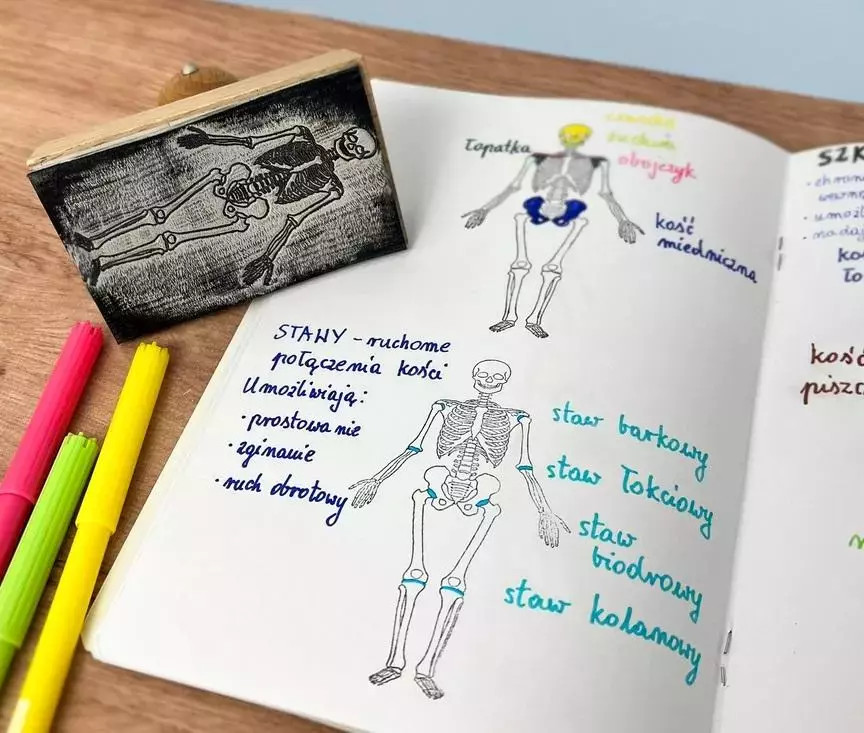 czaszka
żuchwa
łopatka
obojczyk
kość
miedniczna
STAWY - ruchome
połączenia kości
Umożliwiają:
· prostowanie
· zginanie
· ruch obrotowy
staw barkowy
staw łokciowy
staw
biodrowy
staw kolanowy
SZK
· chron
· umoż
· nadaj
kość
piszcz